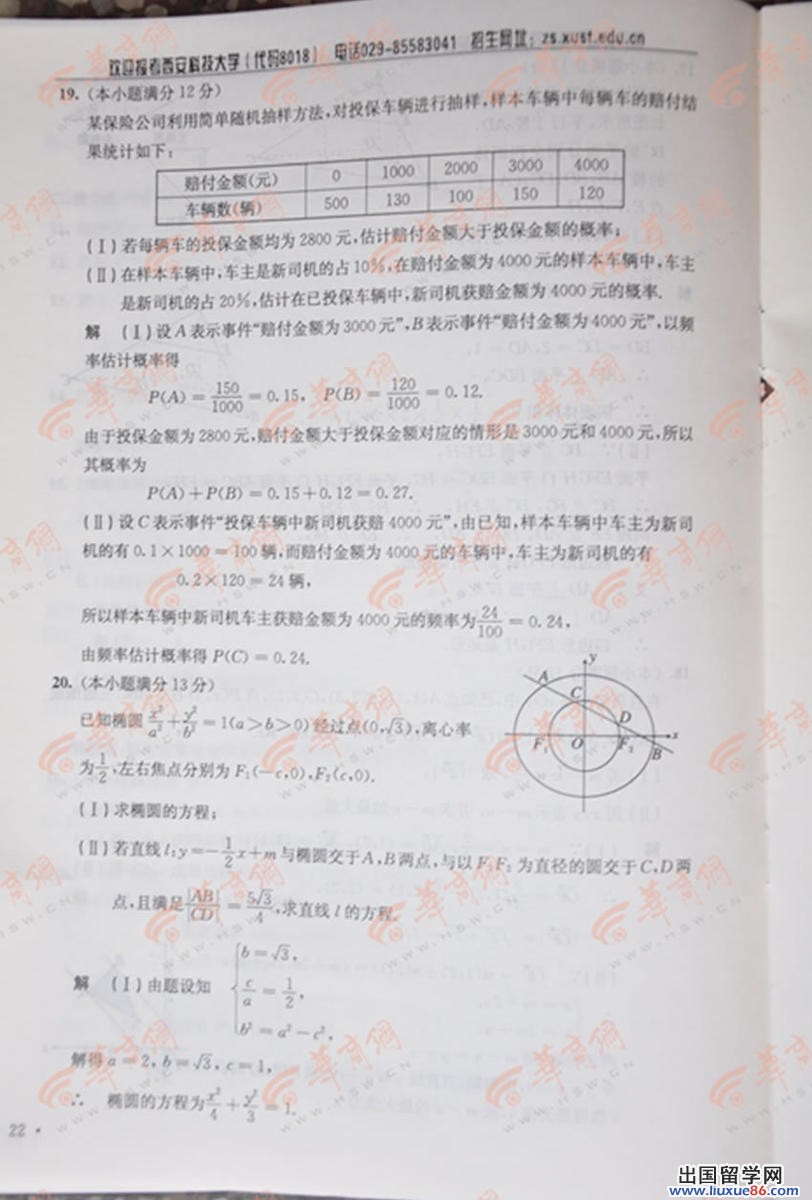 欢迎报考西安科技大学(代码8018) 电话029-85583041 招生网址:zs.xust.edu.cn
19. (本小题满分12分)
某保险公司利用简单随机抽样方法,对投保车辆进行抽样,样本车辆中每辆车的赔付结
果统计如下:
赔付金额(元) 0 1000 2000 3000 4000
车辆数(辆) 500 130 100 150 120
(Ⅰ)若每辆车的投保金额均为2800元,估计赔付金额大于投保金额的概率;
(Ⅱ)在样本车辆中,车主是新司机的占10%,在赔付金额为4000元的样本车辆中,车主
是新司机的占20%,估计在已投保车辆中,新司机获赔金额为4000元的概率.
解 (Ⅰ)设A表示事件“赔付金额为3000元”,B表示事件“赔付金额为4000元”,以频
率估计概率得
P(A)=150/1000=0.15, P(B)=120/1000=0.12.
由于投保金额为2800元,赔付金额大于投保金额对应的情形是3000元和4000元,所以
其概率为
P(A)+P(B)=0.15+0.12=0.27.
(Ⅱ)设C表示事件“投保车辆中新司机获赔4000元”,由已知,样本车辆中车主为新司
机的有0.1×1000=100辆,而赔付金额为4000元的车辆中,车主为新司机的有
0.2×120=24辆,
所以样本车辆中新司机车主获赔金额为4000元的频率为24/100=0.24,
由频率估计概率得P(C)=0.24.
20. (本小题满分13分)
已知椭圆x²/a²+y²/b²=1(a>b>0)经过点(0,√3),离心率
为1/2,左右焦点分别为F₁(-c,0),F₂(c,0).
y A C D x F₁ O F₂ B
(Ⅰ)求椭圆的方程;
(Ⅱ)若直线l:y=-1/2x+m与椭圆交于A,B两点,与以F₁F₂为直径的圆交于C,D两
点,且满足|AB|/|CD|=5√3/4,求直线l的方程.
解 (Ⅰ)由题设知 {b=√3,
c/a=1/2,
b²=a²-c²,
解得a=2,b=√3,c=1,
∴ 椭圆的方程为x²/4+y²/3=1.
22 ·
华商网
WWW.HSW.CN
出国留学网
www.liuxue86.com